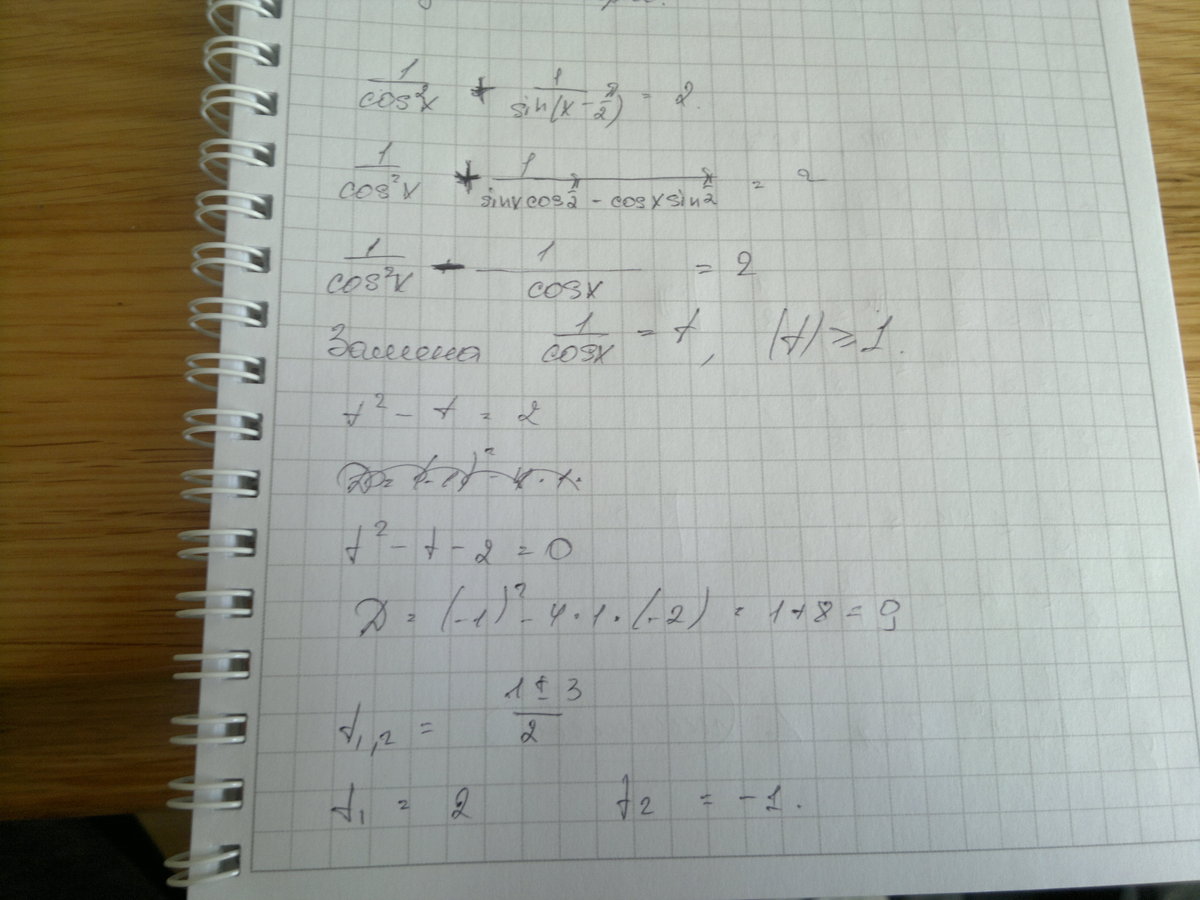 1/cos²x + 1/sin(x - π/2) = 2.
1/cos²x + 1/(sinx cos π/2 - cosx sin π/2) = 2
1/cos²x - 1/cosx = 2
Замена 1/cosx = t, |t| ≥ 1.
t² - t = 2
t² - t - 2 = 0
D = (-1)² - 4·1·(-2) = 1+8 = 9
t₁,₂ = (1 ± 3)/2
t₁ = 2 t₂ = -1.